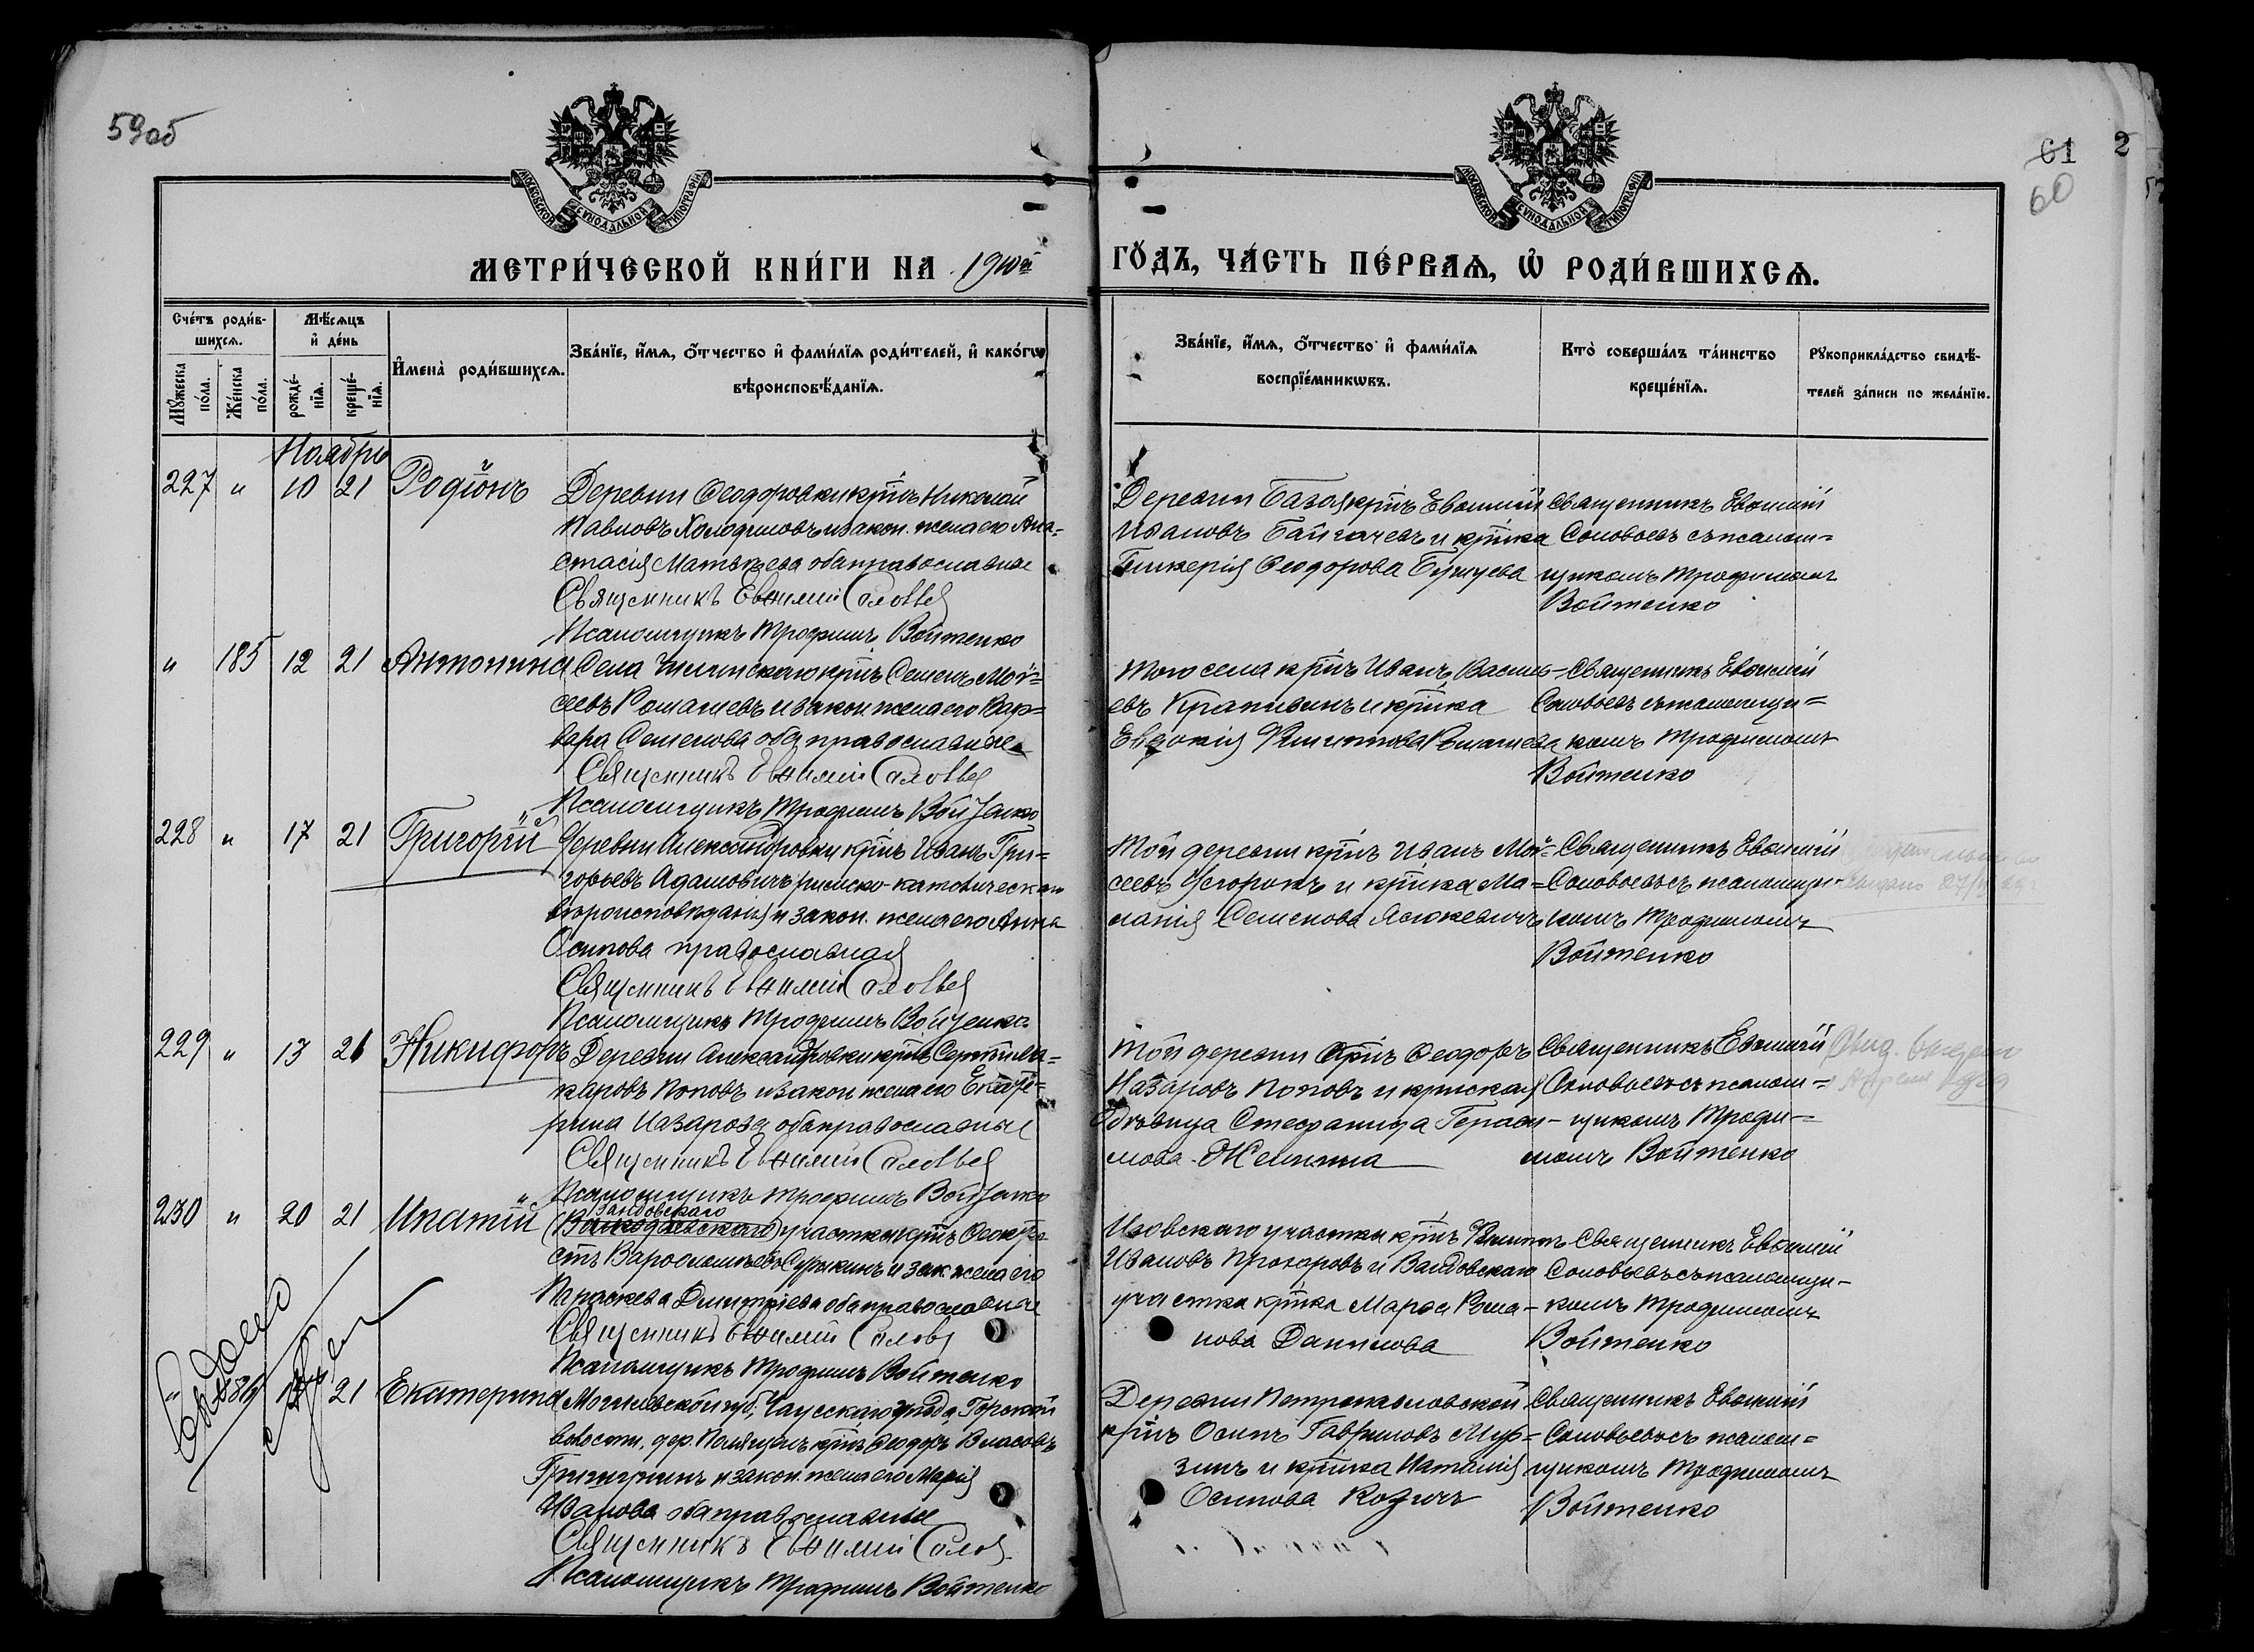 59об
61 2
60
МОСКОВСКОЙ СѴНОДАЛЬНОЙ ТИПОГРАФІИ
МОСКОВСКОЙ СѴНОДАЛЬНОЙ ТИПОГРАФІИ
МЕТРИ́ЧЕСКОЙ КНИ́ГИ НА 1910й
ГО́ДЪ, ЧА́СТЬ ПЕ́РВАѦ, Ѡ҆ РОДИ́ВШИХСѦ.
Сче́тъ роди́в-
шихсѧ.
Мѣ́сѧцъ
и҆ де́нь
Мꙋ́жеска
по́ла.
Же́нска
по́ла.
рожде́-
нїѧ.
креще́-
нїѧ.
И҆мена̀ роди́вшихсѧ.
Зва́нїе, и҆́мѧ, ѻ҆́тчество и҆ фами́лїѧ роди́телей, и҆ како́гѡ
вѣроисповѣ́данїѧ.
Зва́нїе, и҆́мѧ, ѻ҆́тчество и҆ фами́лїѧ
воспрїе́мникѡвъ.
Кто̀ соверша́лъ та́инство
креще́нїѧ.
Рꙋкоприкла́дство свидѣ́-
телей за́писи по жела́нїю.
Ноябрь
227 " 10 21 Родіонъ
Деревни Ѳеодоровки кр̃нъ Николай
Павловъ Холодиловъ и закон. жена его Ана=
стасія Матвѣева оба православные
Священникъ Евѳимій Соловьев
Псаломщикъ Трофимъ Войтенко
Деревни кр̃нъ Евѳимій
Ивановъ и кр̃нка
Гликерія Ѳеодорова
Священникъ Евѳимій
Соловьевъ съ псалом=
щикомъ Трофимомъ
Войтенко
" 185 12 21 Антонина
Села кр̃нъ Семенъ Мой=
сеевъ Ромашевъ и закон. жена его Вар=
вара Семенова оба православные
Священникъ Евѳимій Соловьев
Псаломщикъ Трофимъ Войтенко
Того села кр̃нъ Иванъ Василь-
евъ Крапивинъ и кр̃нка
Евдокія Филиппова Ромашева
Священникъ Евѳимій
Соловьевъ съ псаломщи=
комъ Трофимомъ
Войтенко
228 " 17 21 Григорій
Деревни Александровки кр̃нъ Иванъ Гри=
горьевъ Адамовичъ римско-католическаго
вѣроисповѣданія и закон. жена его Анна
Осипова православная
Священникъ Евѳимій Соловьев
Псаломщикъ Трофимъ Войтенко
Той деревни кр̃нъ Иванъ Мой=
сеевъ и кр̃нка Ма=
ланія Семенова Яскевичъ
Священникъ Евѳимій
Соловьевъ съ псаломщи-
комъ Трофимомъ
Войтенко
229 " 13 21 Никифоръ
Деревни Александровки кр̃нъ Сергѣй Ма=
каровъ Поповъ и закон. жена его Екате=
рина Назарова оба православные
Священникъ Евѳимій Соловьев
Псаломщикъ Трофимъ Войтенко
Той деревни кр̃нъ Ѳеодоръ
Назаровъ Поповъ и крнская
дѣвица Стефанида Гераси-
мова
Священникъ Евѳимій
Соловьевъ съ псалом=
щикомъ Трофи=
момъ Войтенко
Свид. выдано
230 " 20 21 Ипатій
участка кр̃нъ Ѳеокти
стъ Варѳоломѣевъ и зак. жена его
Параскева Димитріева оба православные
Священникъ Евѳимій Соловь
Псаломщикъ Трофимъ Войтенко
участка кр̃нъ Филиппъ
Ивановъ Прохоровъ и
участка кр̃нка Марѳа Рома-
нова Данилова
Священникъ Евѳимій
Соловьевъ съ псаломщи-
комъ Трофимомъ
Войтенко
" 186 21 Екатерина
Могилевской губ, Чаусскаго уѣзда, Горской
волости, дер. кр̃нъ Ѳеодоръ Власовъ
и закон. жена его Марія
Иванова оба православные
Священникъ Евѳимій Солов
Псаломщикъ Трофимъ Войтенко
Деревни Петропавловской
кр̃нъ Осипъ Гавриловъ Мур=
зинъ и кр̃нка Наталія
Осипова
Священникъ Евѳимій
Соловьевъ съ псалом=
щикомъ Трофимомъ
Войтенко